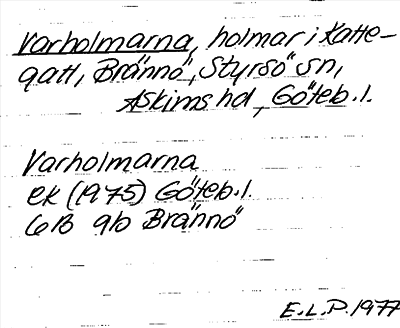 Varholmarna, holmar i Katte-
gatt, Brännö, Styrsö sn,
Askims hd, Göteb. l.
Varholmarna
ek (1975) Göteb. l.
6B 9b Brännö
E.L.P. 1977